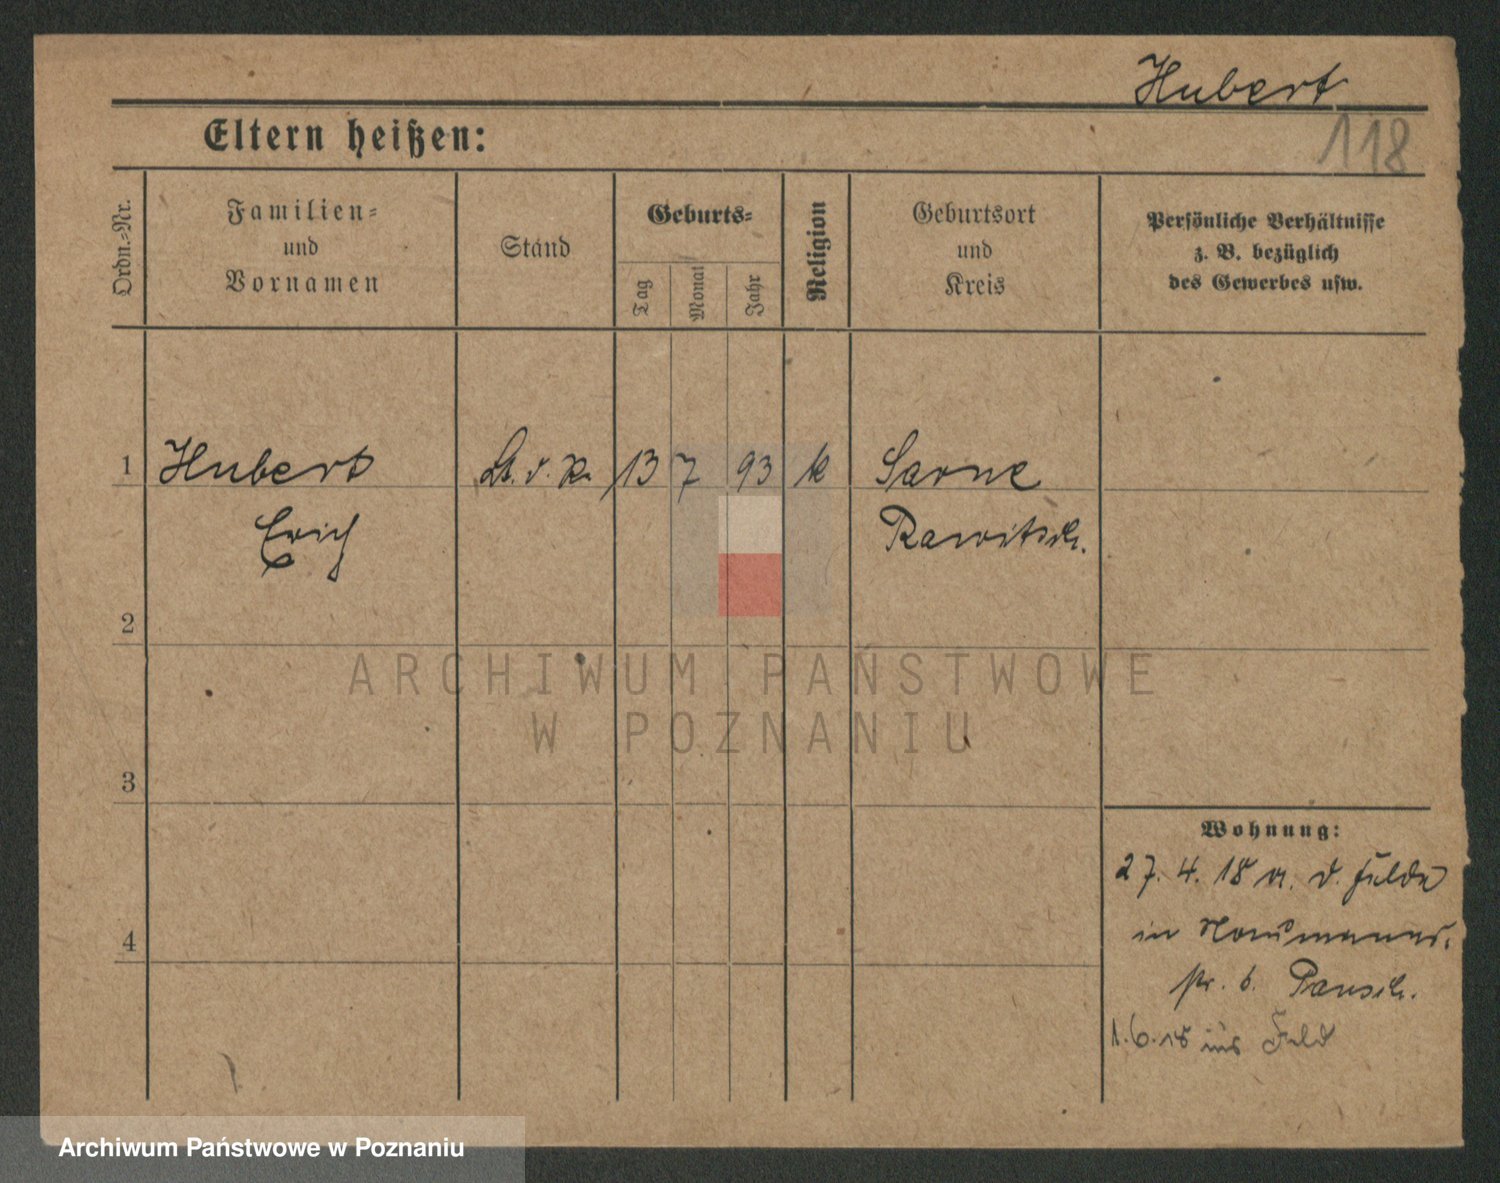 Hubert
118
Eltern heißen:
Ordn.-Nr.
Familien-
und
Vornamen
Stand
Geburts-
Tag
Monat
Jahr
Religion
Geburtsort
und
Kreis
Persönliche Verhältnisse
z. B. bezüglich
des Gewerbes usw.
1 Hubert Lt. d. R. 13 7 93 k Sarne
Erich Rawitsch.
2
3
4
Wohnung:
27. 4. 18 a. d. Felde
in
str. b.
1.6.18 ins Feld
ARCHIWUM PAŃSTWOWE
W POZNANIU
Archiwum Państwowe w Poznaniu